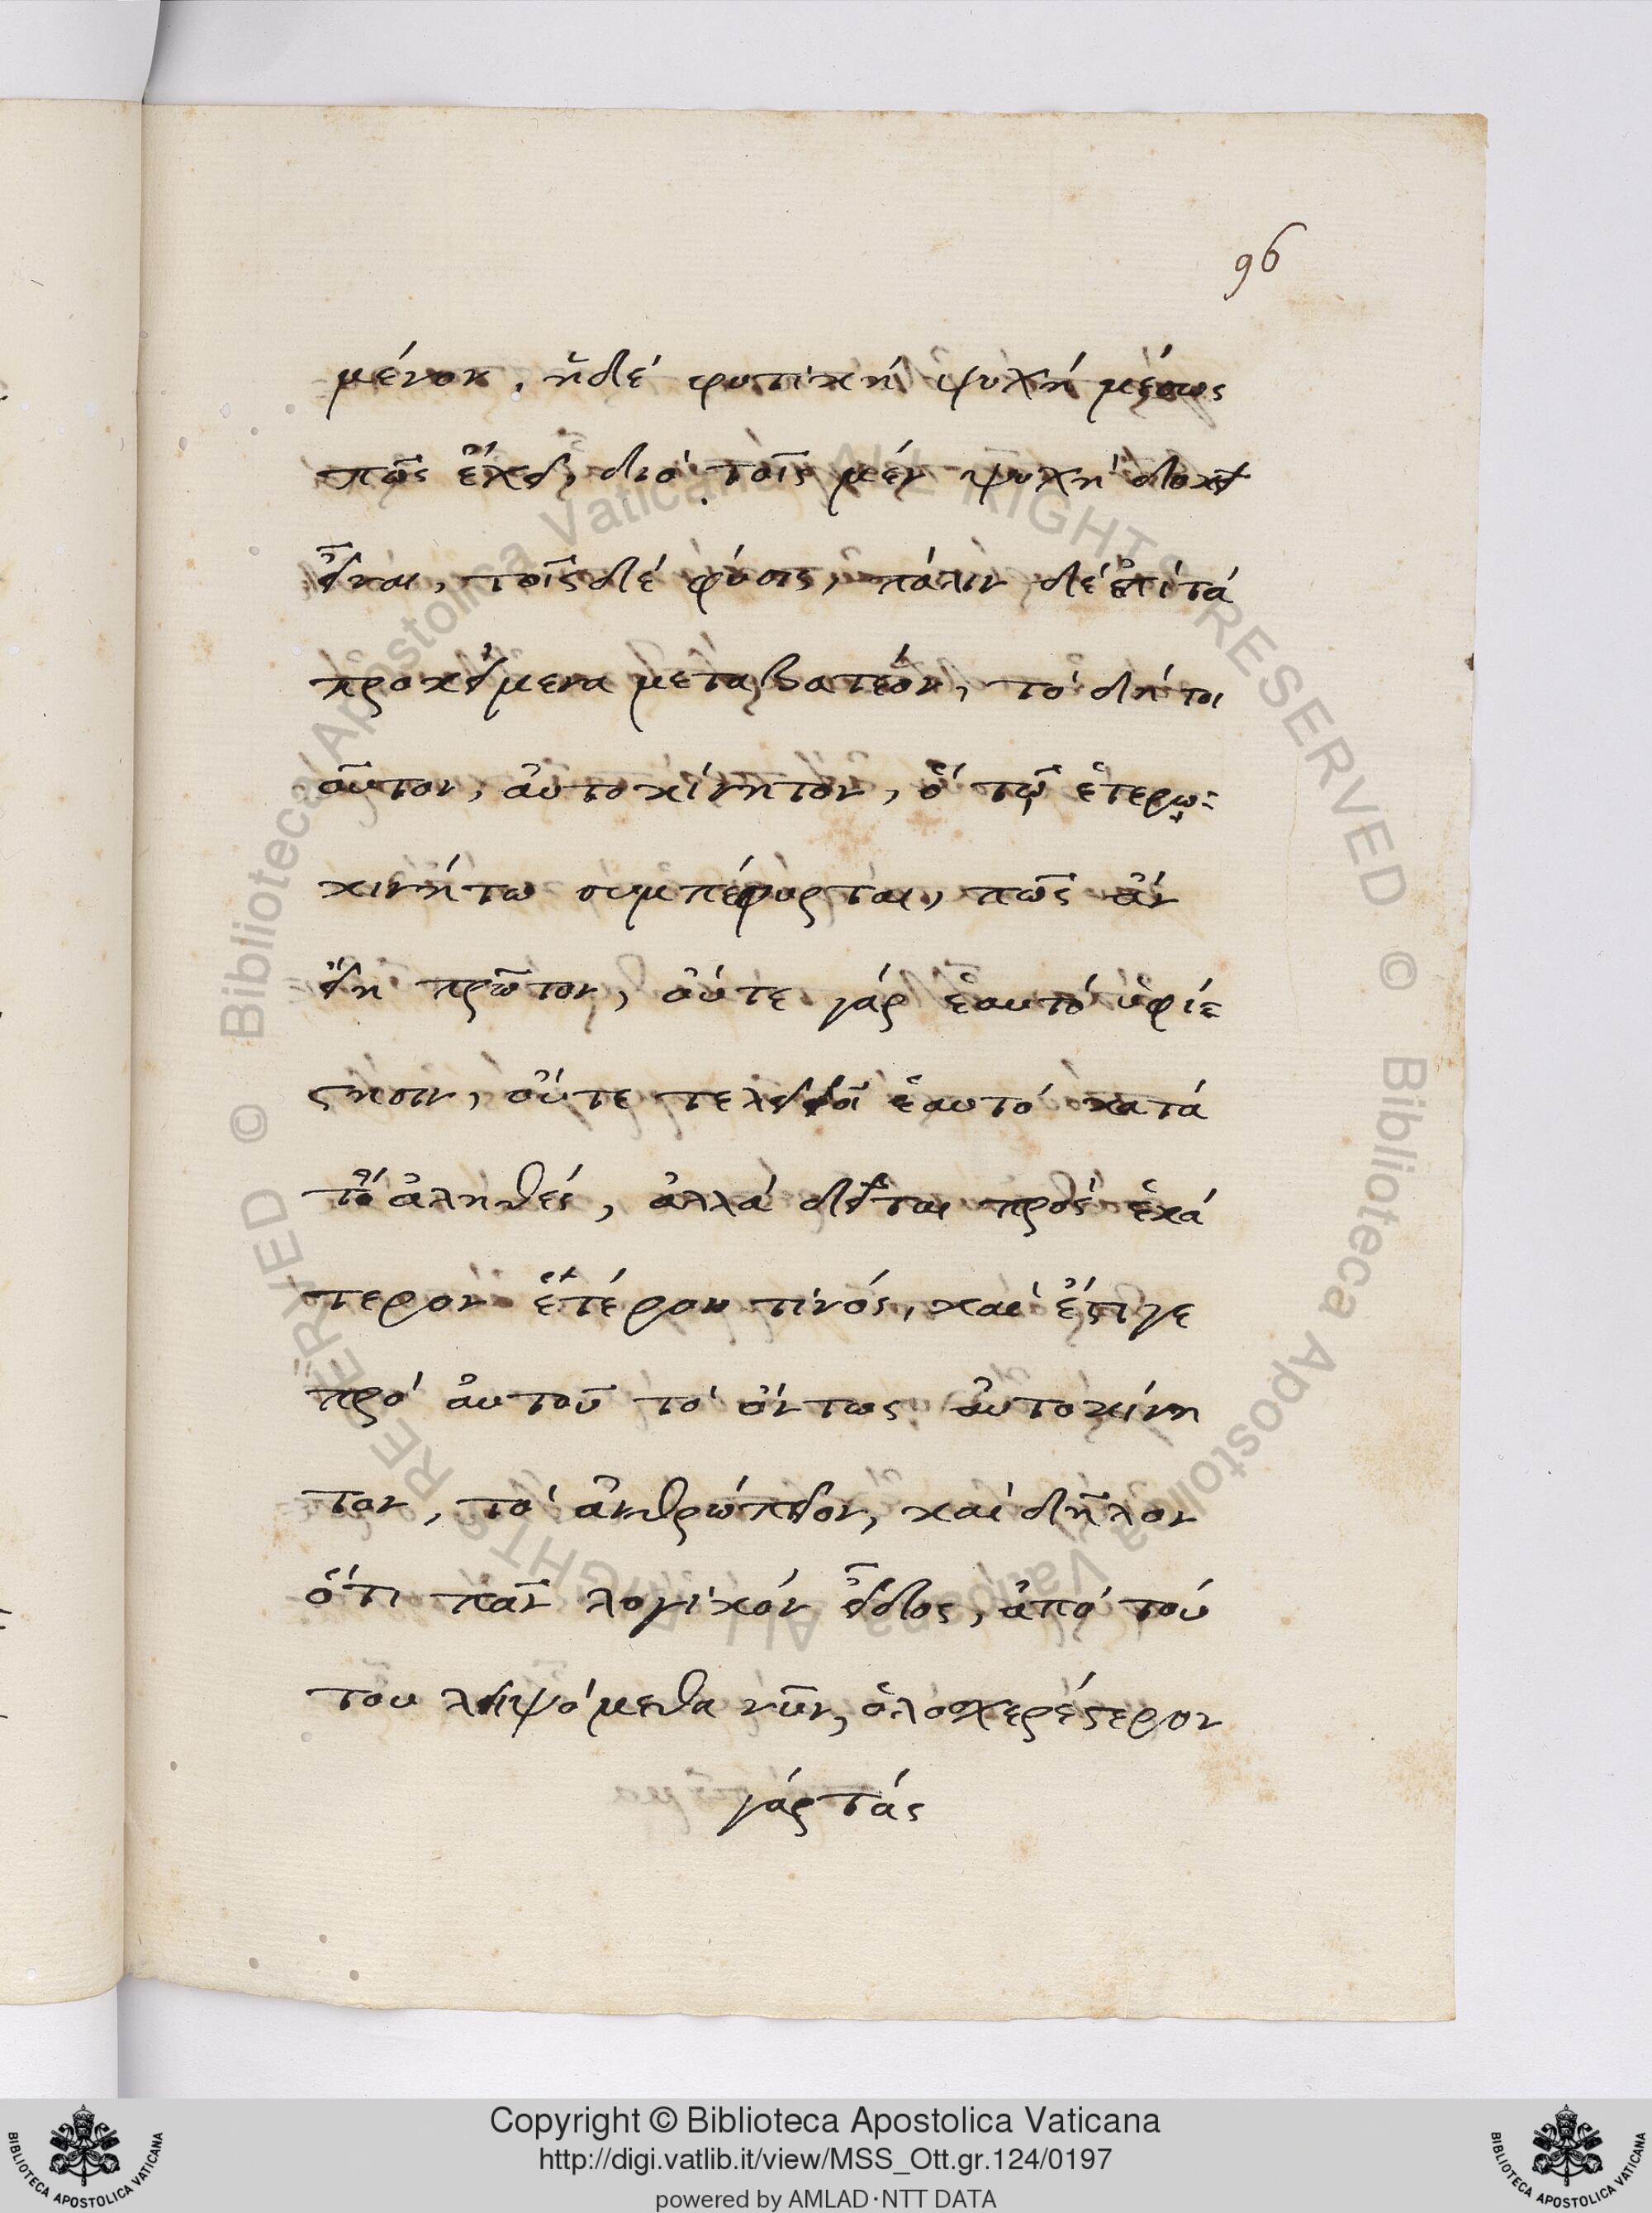 96
μένοκ. ἡ δέ φυτικὴ ψυχή μέσως
πῶς ἔχει, διὸ τοῖς μέν ψυχὴ δοκεῖ
εἶναι, τοῖς δέ φύσις, πάλιν δέ ἐπὶ τά
προκείμενα μεταβατέον, τὸ δή τοι
οὗτον, αὐτοκίνητον, ὅ τῷ ἑτερῳ-
κινήτω συμπέφυρται, πῶς ἄν
εἴη πρῶτον, οὔτε γάρ ἑαυτό ὑφί-
στησιν, οὔτε τελειοῖ ἑαυτό κατά
τὸ ἀληθές, ἀλλά δεῖται πρὸς ἑκά
τερον ἑτέρου τινός, καὶ ἔστι γε
πρὸ αὐτοῦ τὸ ὄντως αὐτοκίνη
τον, τὸ ἀνθρώπειον, καὶ δῆλον
ὅτι πᾶν λογικόν εἶδος, ἀπό τού
του ληψόμεθα νῦν, ὁλοσχερέστερον
γάρ τάς
Copyright © Biblioteca Apostolica Vaticana
http://digi.vatlib.it/view/MSS_Ott.gr.124/0197
powered by AMLAD·NTT DATA
BIBLIOTECA APOSTOLICA VATICANA
BIBLIOTECA APOSTOLICA VATICANA
© Biblioteca Apostolica Vaticana ALL RIGHTS RESERVED
© Biblioteca Apostolica Vaticana ALL RIGHTS RESERVED